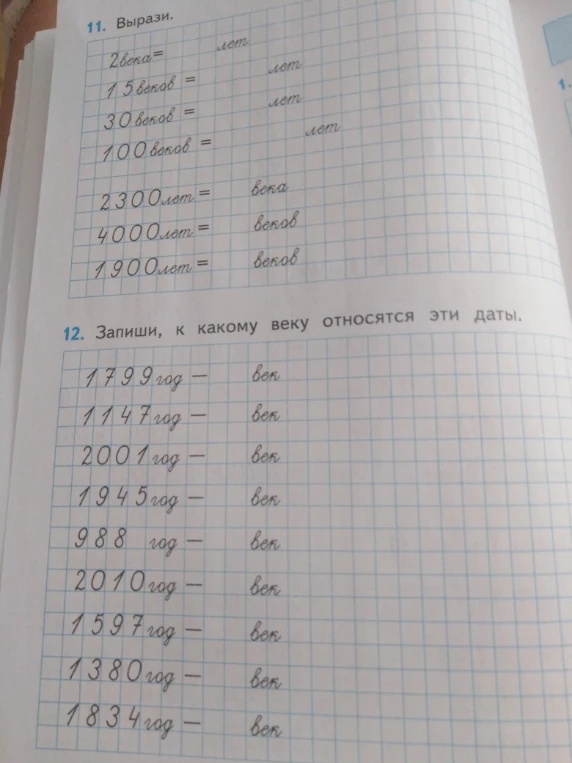 11. Вырази.
2 века = лет
15 веков = лет
30 веков = лет
100 веков = лет
2300 лет = века
4000 лет = веков
1900 лет = веков
12. Запиши, к какому веку относятся эти даты.
1799 год — век
1147 год — век
2001 год — век
1945 год — век
988 год — век
2010 год — век
1597 год — век
1380 год — век
1834 год — век
1.